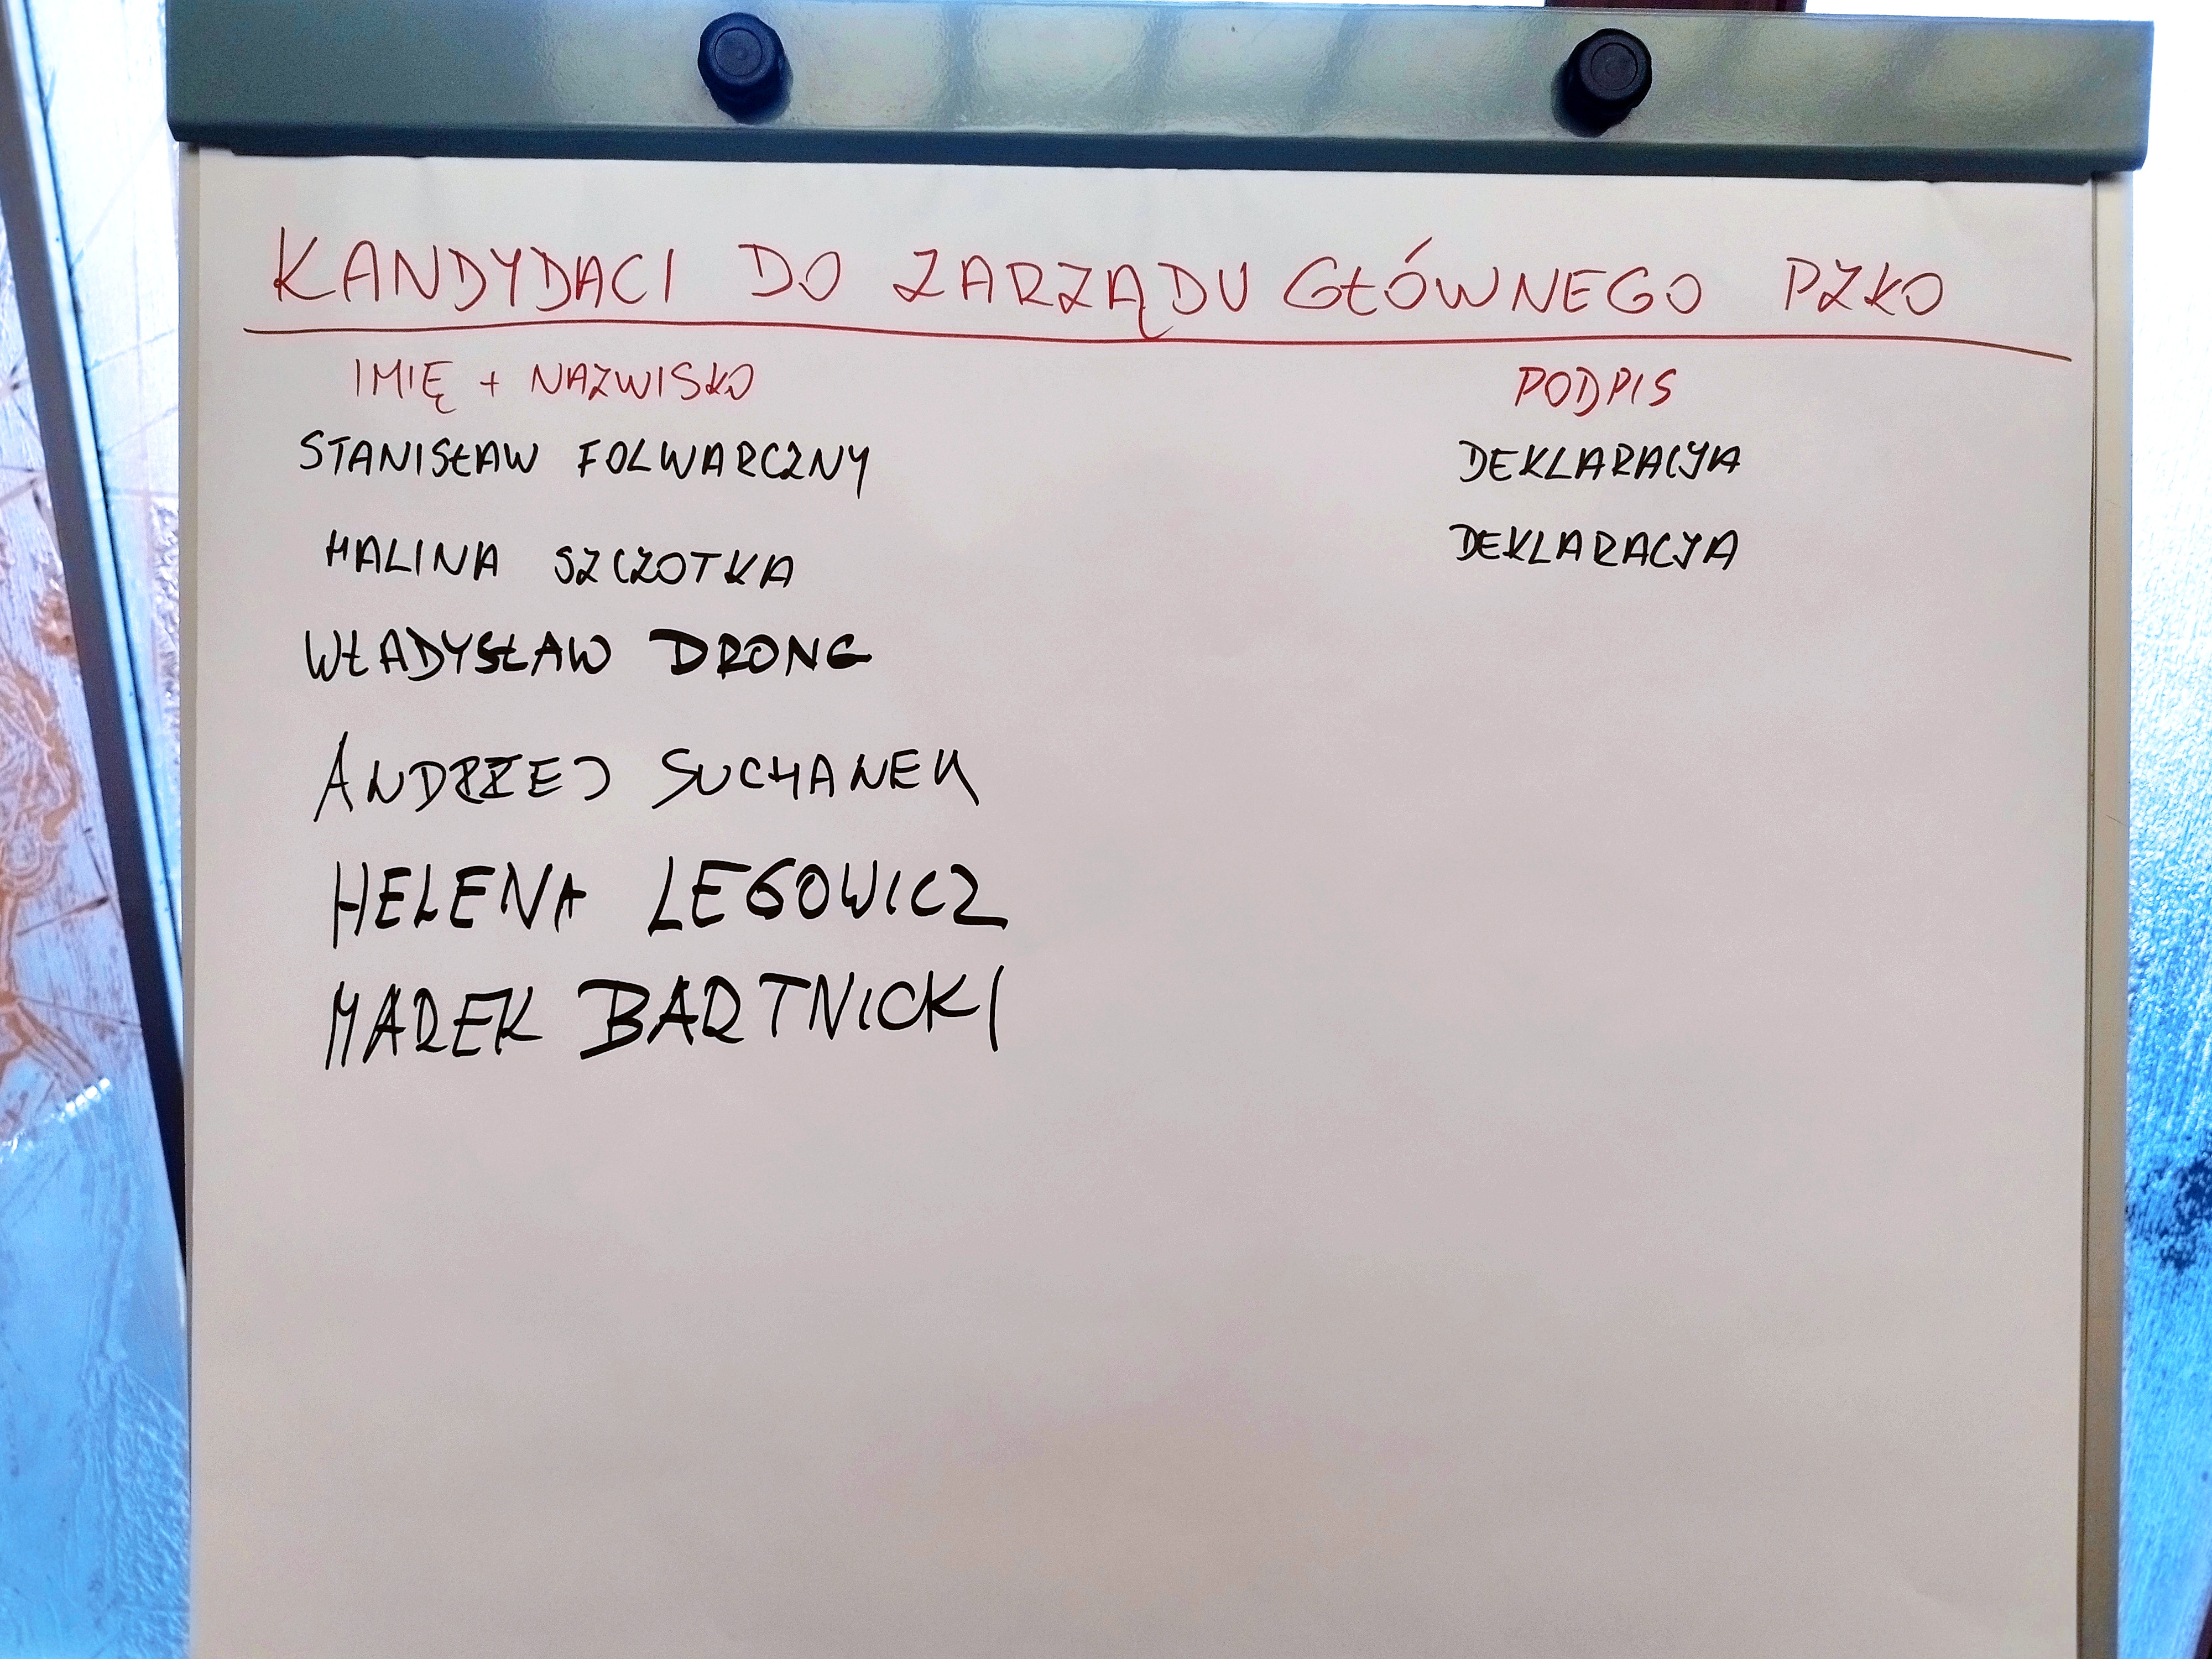 KANDYDACI DO ZARZĄDU GŁÓWNEGO PZKO
IMIĘ + NAZWISKO PODPIS
STANISŁAW FOLWARCZNY DEKLARACYJA
HALINA SZCZOTKA DEKLARACJA
WŁADYSŁAW DRONG
ANDRZEJ SUCHANEK
HELENA LEGOWICZ
MAREK BARTNICKI